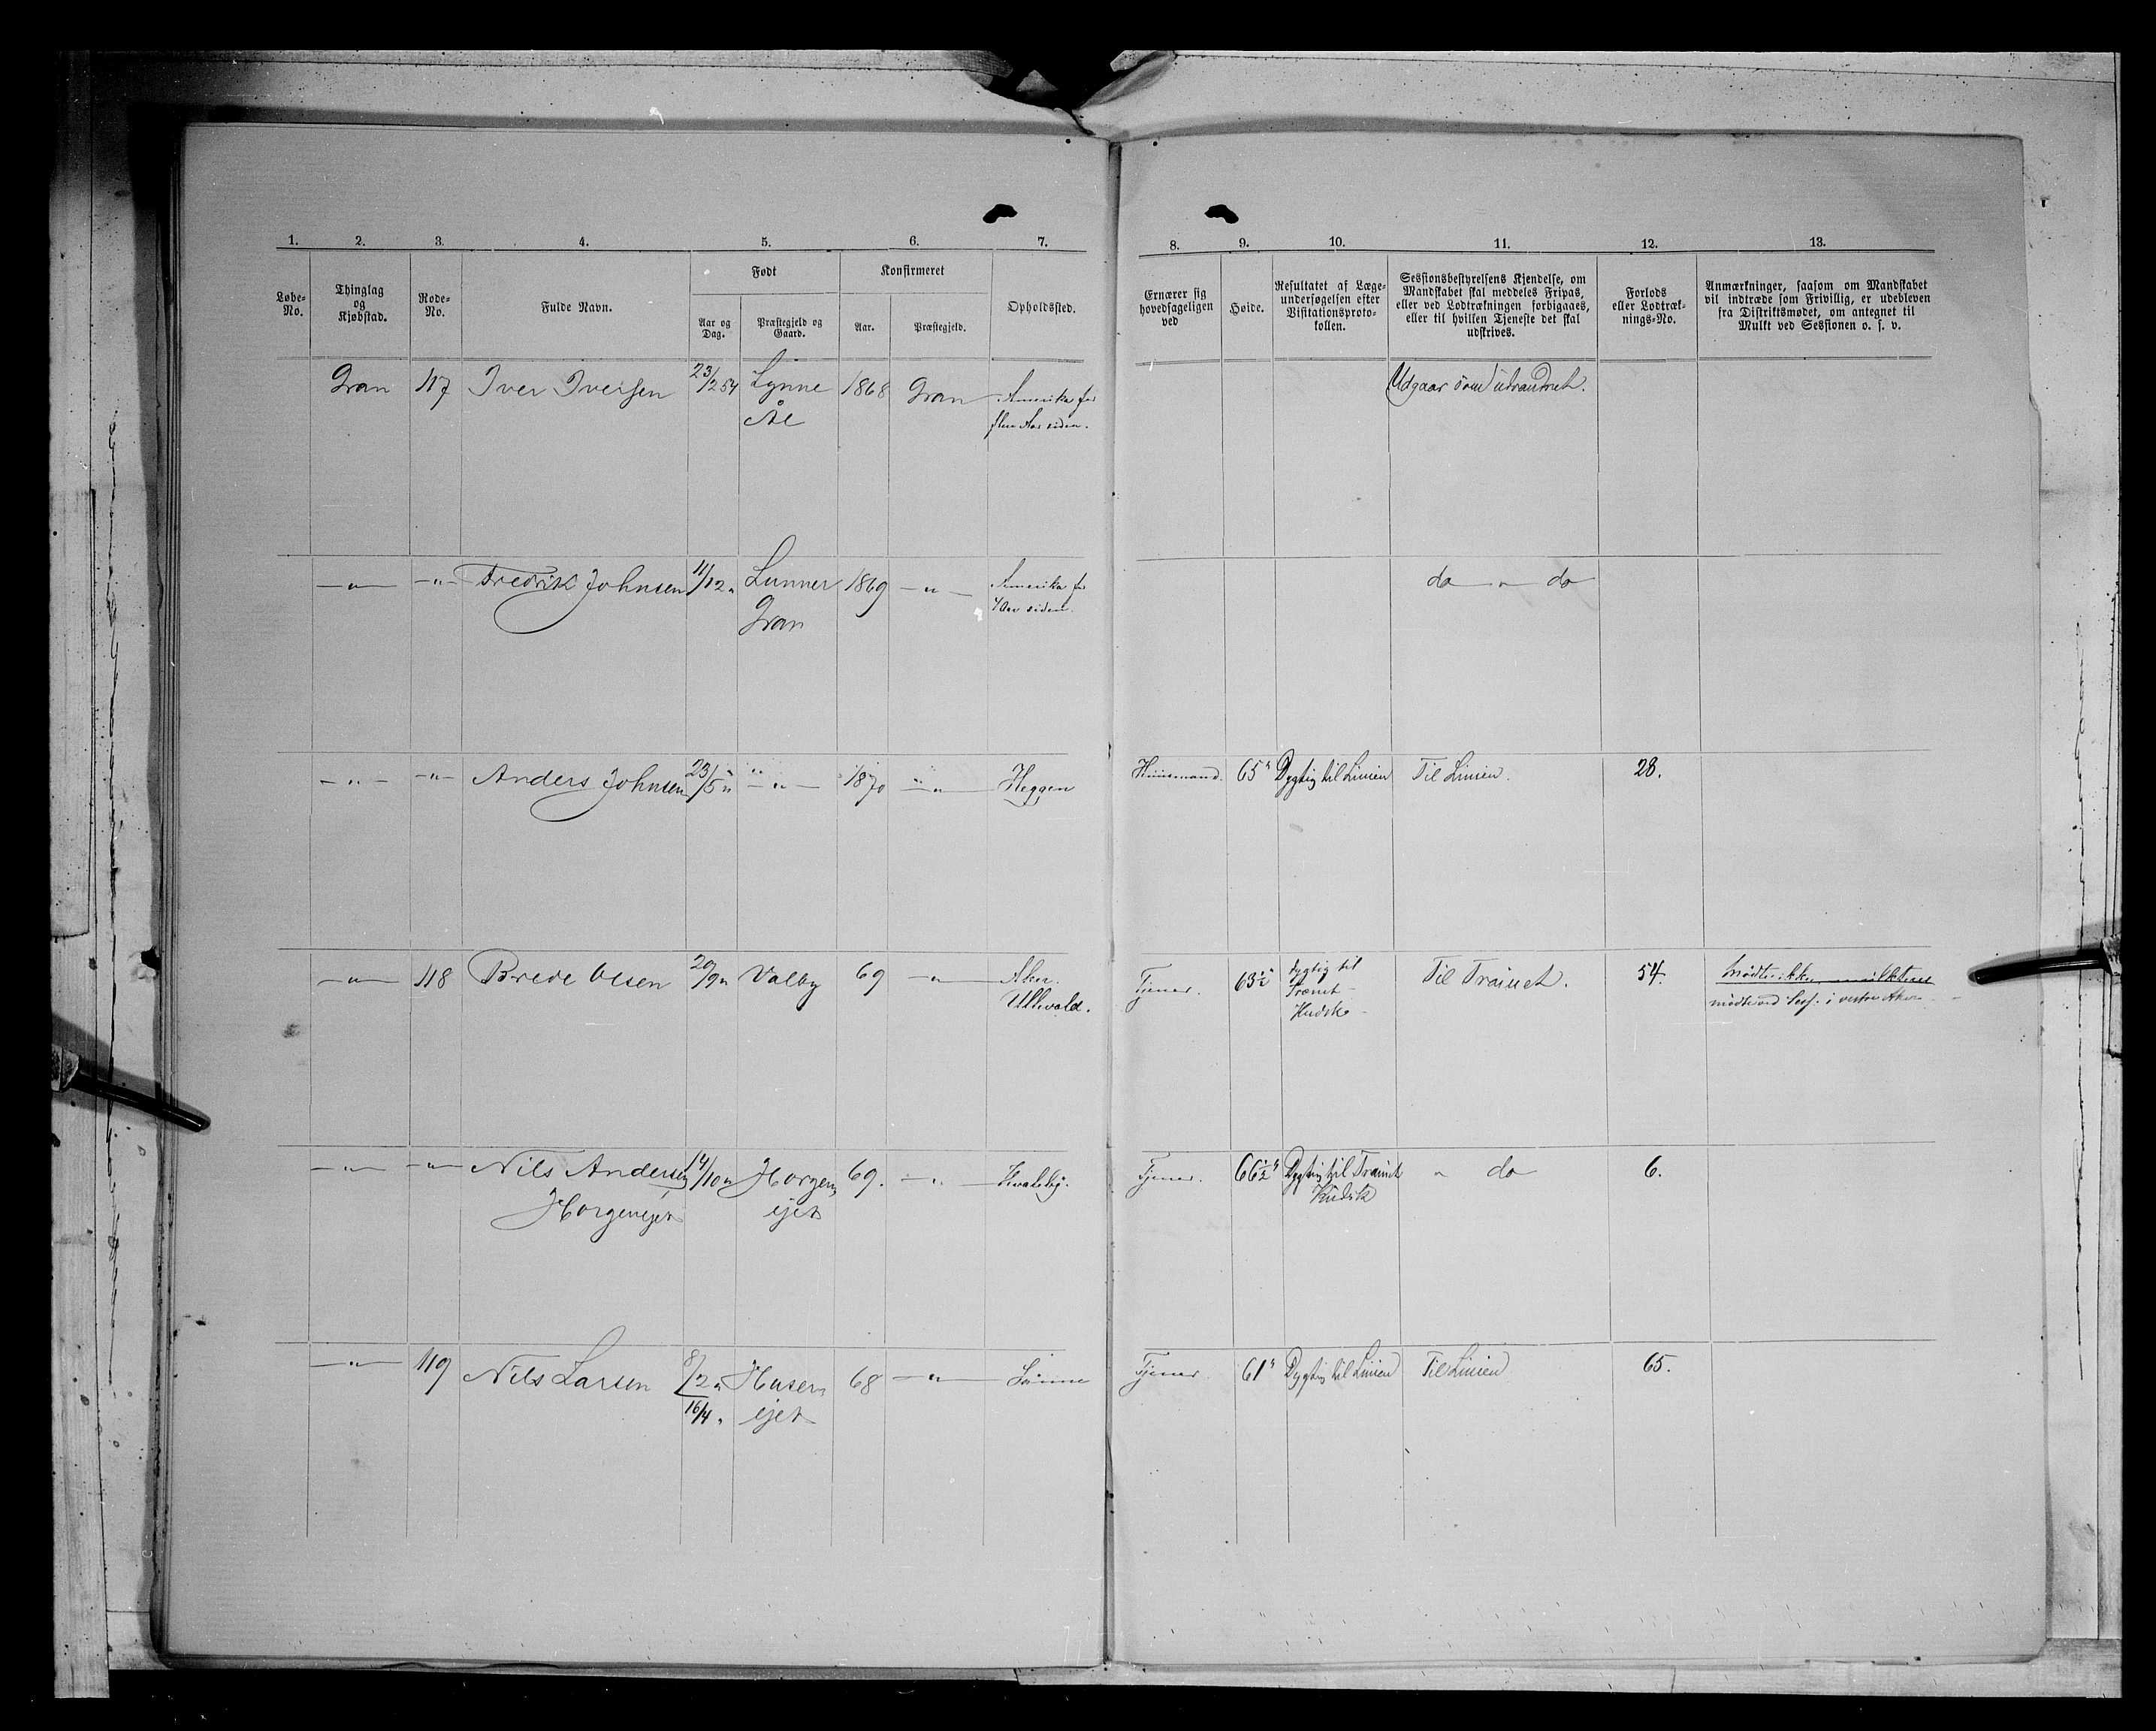 1. 2. 3. 4. 5. 6. 7.
Løbe-No. Thinglag og Kjøbstad. Rode-No. Fulde Navn. Født Aar og Dag. Præstegjeld og Gaard. Konfirmeret Aar. Præstegjeld. Opholdssted.
8. 9. 10. 11. 12. 13.
Ernærer sig hovedsageligen ved
Høide.
Resultatet af Læge-undersøgelsen efter Visitationsproto-kollen.
Sessionsbestyrelsens Kjendelse, om Mandskabet skal meddeles Fripas, eller ved Lodtrækningen forbigaaes, eller til hvilken Tjeneste det skal udskrives.
Forlods eller Lodtræk-nings-No.
Anmærkninger, saasom om Mandskabet vil indtræde som Frivillig, er udebleven fra Distriktsmødet, om antegnet til Mulkt ved Sessionen o. s. v.
Gran 117 Iver Iversen 23/12 54 Lynne 1868 Gran Amerika for Udgaar som udvandret.
Ål flere Aar siden.
-"- -"- Fredrik Johnsen 11/12 " Lunner 1869 -"- Amerika for do " do
Gran Aar siden.
-"- -"- Anders Johnsen 23/5 " -"- 1870 -"- Heggen Huusmand. 65" Dygtig til Linien Til Linien. 28.
-"- 118 Brede Olsen 20/9 " Valby 69 -"- Aker. Tjener. 63½" dygtig til Til Trainet. 54. Mødte ikke
Ullevold. Trænet Kudsk mødte ved Sess. i vestre Aker
-"- -"- Nils Andersen 14/10 " Horgen 69. -"- Hvaleby. Tjener. 66½" Dygtig til Trainet " do 6.
Horgenejet ejet Kudsk
-"- 119 Nils Larsen 8/2 " Husen 68 -"- Tjener 61" Dygtig til Linien Til Linien 65.
16/4 " ejet